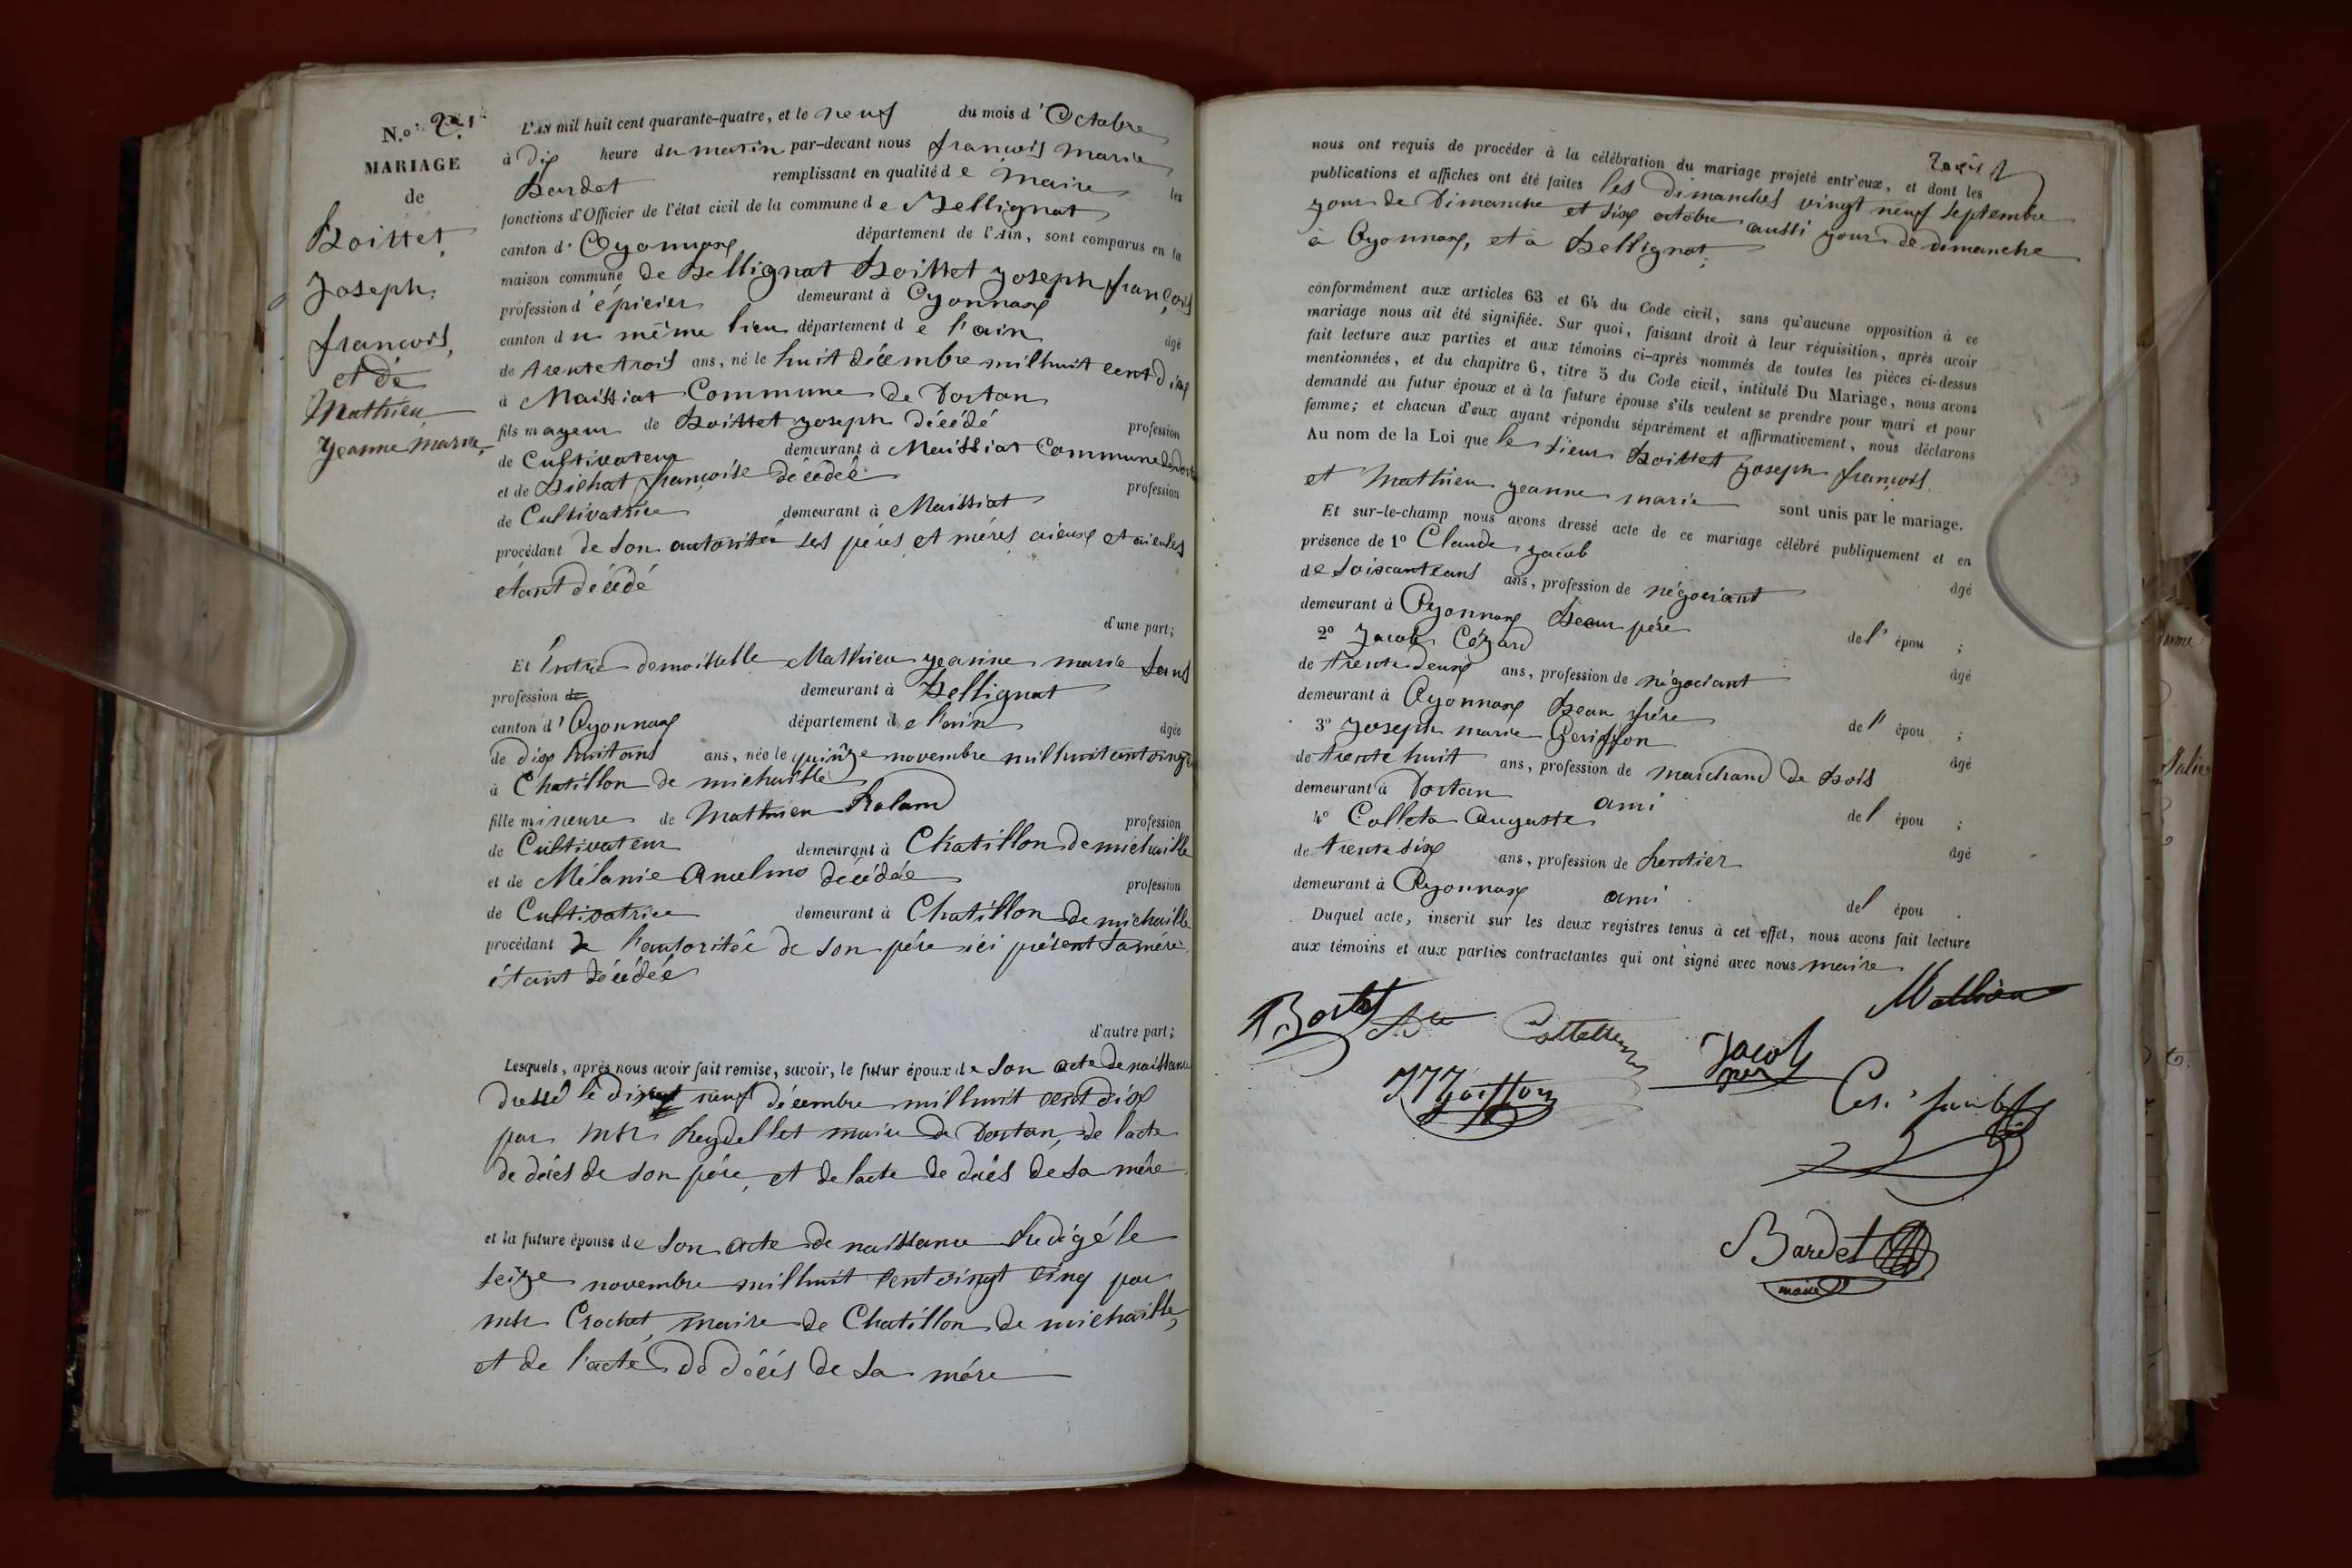 N.o 2.
MARIAGE
de
Boittet,
Joseph,
françois,
et de
Mathieu
Jeanne Marie
L'AN mil huit cent quarante-quatre, et le neuf du mois d'Octobre
à dix heure du matin par-devant nous françois marie
Bardet remplissant en qualité de maire les
fonctions d'Officier de l'état civil de la commune de Bellignat
canton d'Oyonnax département de l'Ain, sont comparus en la
maison commune de Bellignat Boittet Joseph françois
profession d'épicier demeurant à Oyonnax
canton du même lieu département de l'ain âgé
de trente trois ans, né le huit décembre mil huit cent dix
à Maissiat Commune de Dortan
fils mayeur de Boittet Joseph décédé profession
de Cultivateur demeurant à Maissiat Commune de Dortan
et de françoise décédée profession
de Cultivatrice demeurant à Maissiat
procédant de son autorité ses pères et mères aieux et aieules
étant décédé
d'une part;
Et Entre demoiselle Mathieu Jeanne marie sans
profession de demeurant à Bellignat
canton d'Oyonnax département de l'ain âgée
de dix huit ans ans, née le quinze novembre mil huit cent vingt
à Chatillon de michaille
fille mineure de Mathieu Roland profession
de Cultivateur demeurant à Chatillon de michaille
et de Mélanie Ancelme décédée profession
de Cultivatrice demeurant à Chatillon de michaille
procédant de l'autoritée de son père ici présent sa mère
étant décédée
d'autre part;
Lesquels, après nous avoir fait remise, savoir, le futur époux de son acte de naissance
dressé le neuf décembre mil huit cent dix
par Mr Reydellet maire de Dortan, de l'acte
de décès de son père, et de l'acte de décès de sa mère
et la future épouse de son acte de naissance Rédigé le
seize novembre mil huit cent vingt cinq par
Mr Crochet, maire de Chatillon de michaille,
et de l'acte de décès de sa mère
nous ont requis de procéder à la célébration du mariage projeté entr'eux, et dont les
publications et affiches ont été faites les dimanches vingt neuf septembre
jour de Dimanche et six octobre aussi jour de dimanche
à Oyonnax, et à Bellignat;
conformément aux articles 63 et 64 du Code civil, sans qu'aucune opposition à ce
mariage nous ait été signifiée. Sur quoi, faisant droit à leur réquisition, après avoir
fait lecture aux parties et aux témoins ci-après nommés de toutes les pièces ci-dessus
mentionnées, et du chapitre 6, titre 5 du Code civil, intitulé Du Mariage, nous avons
demandé au futur époux et à la future épouse s'ils veulent se prendre pour mari et pour
femme; et chacun d'eux ayant répondu séparément et affirmativement, nous déclarons
Au nom de la Loi que le sieur Boittet Joseph françois
et Mathieu Jeanne marie sont unis par le mariage.
Et sur-le-champ nous avons dressé acte de ce mariage célébré publiquement et en
présence de 1o Claude Jacob âgé
de soixante ans ans, profession de négociant
demeurant à Oyonnax Beau père de l'épou ;
2o Jacob Cézard âgé
de trente deux ans, profession de négociant
demeurant à Oyonnax Beau frère de l'épou ;
3o Joseph marie Goiffon âgé
de trente huit ans, profession de marchand de bois
demeurant à Dortan ami de l épou ;
4o Colleta Auguste âgé
de trente six ans, profession de Rentier
demeurant à Oyonnax ami de l épou .
Duquel acte, inscrit sur les deux registres tenus à cet effet, nous avons fait lecture
aux témoins et aux parties contractantes qui ont signé avec nous maire
Mathieu
Jacob
père
J M Goiffon
Bardet
maire